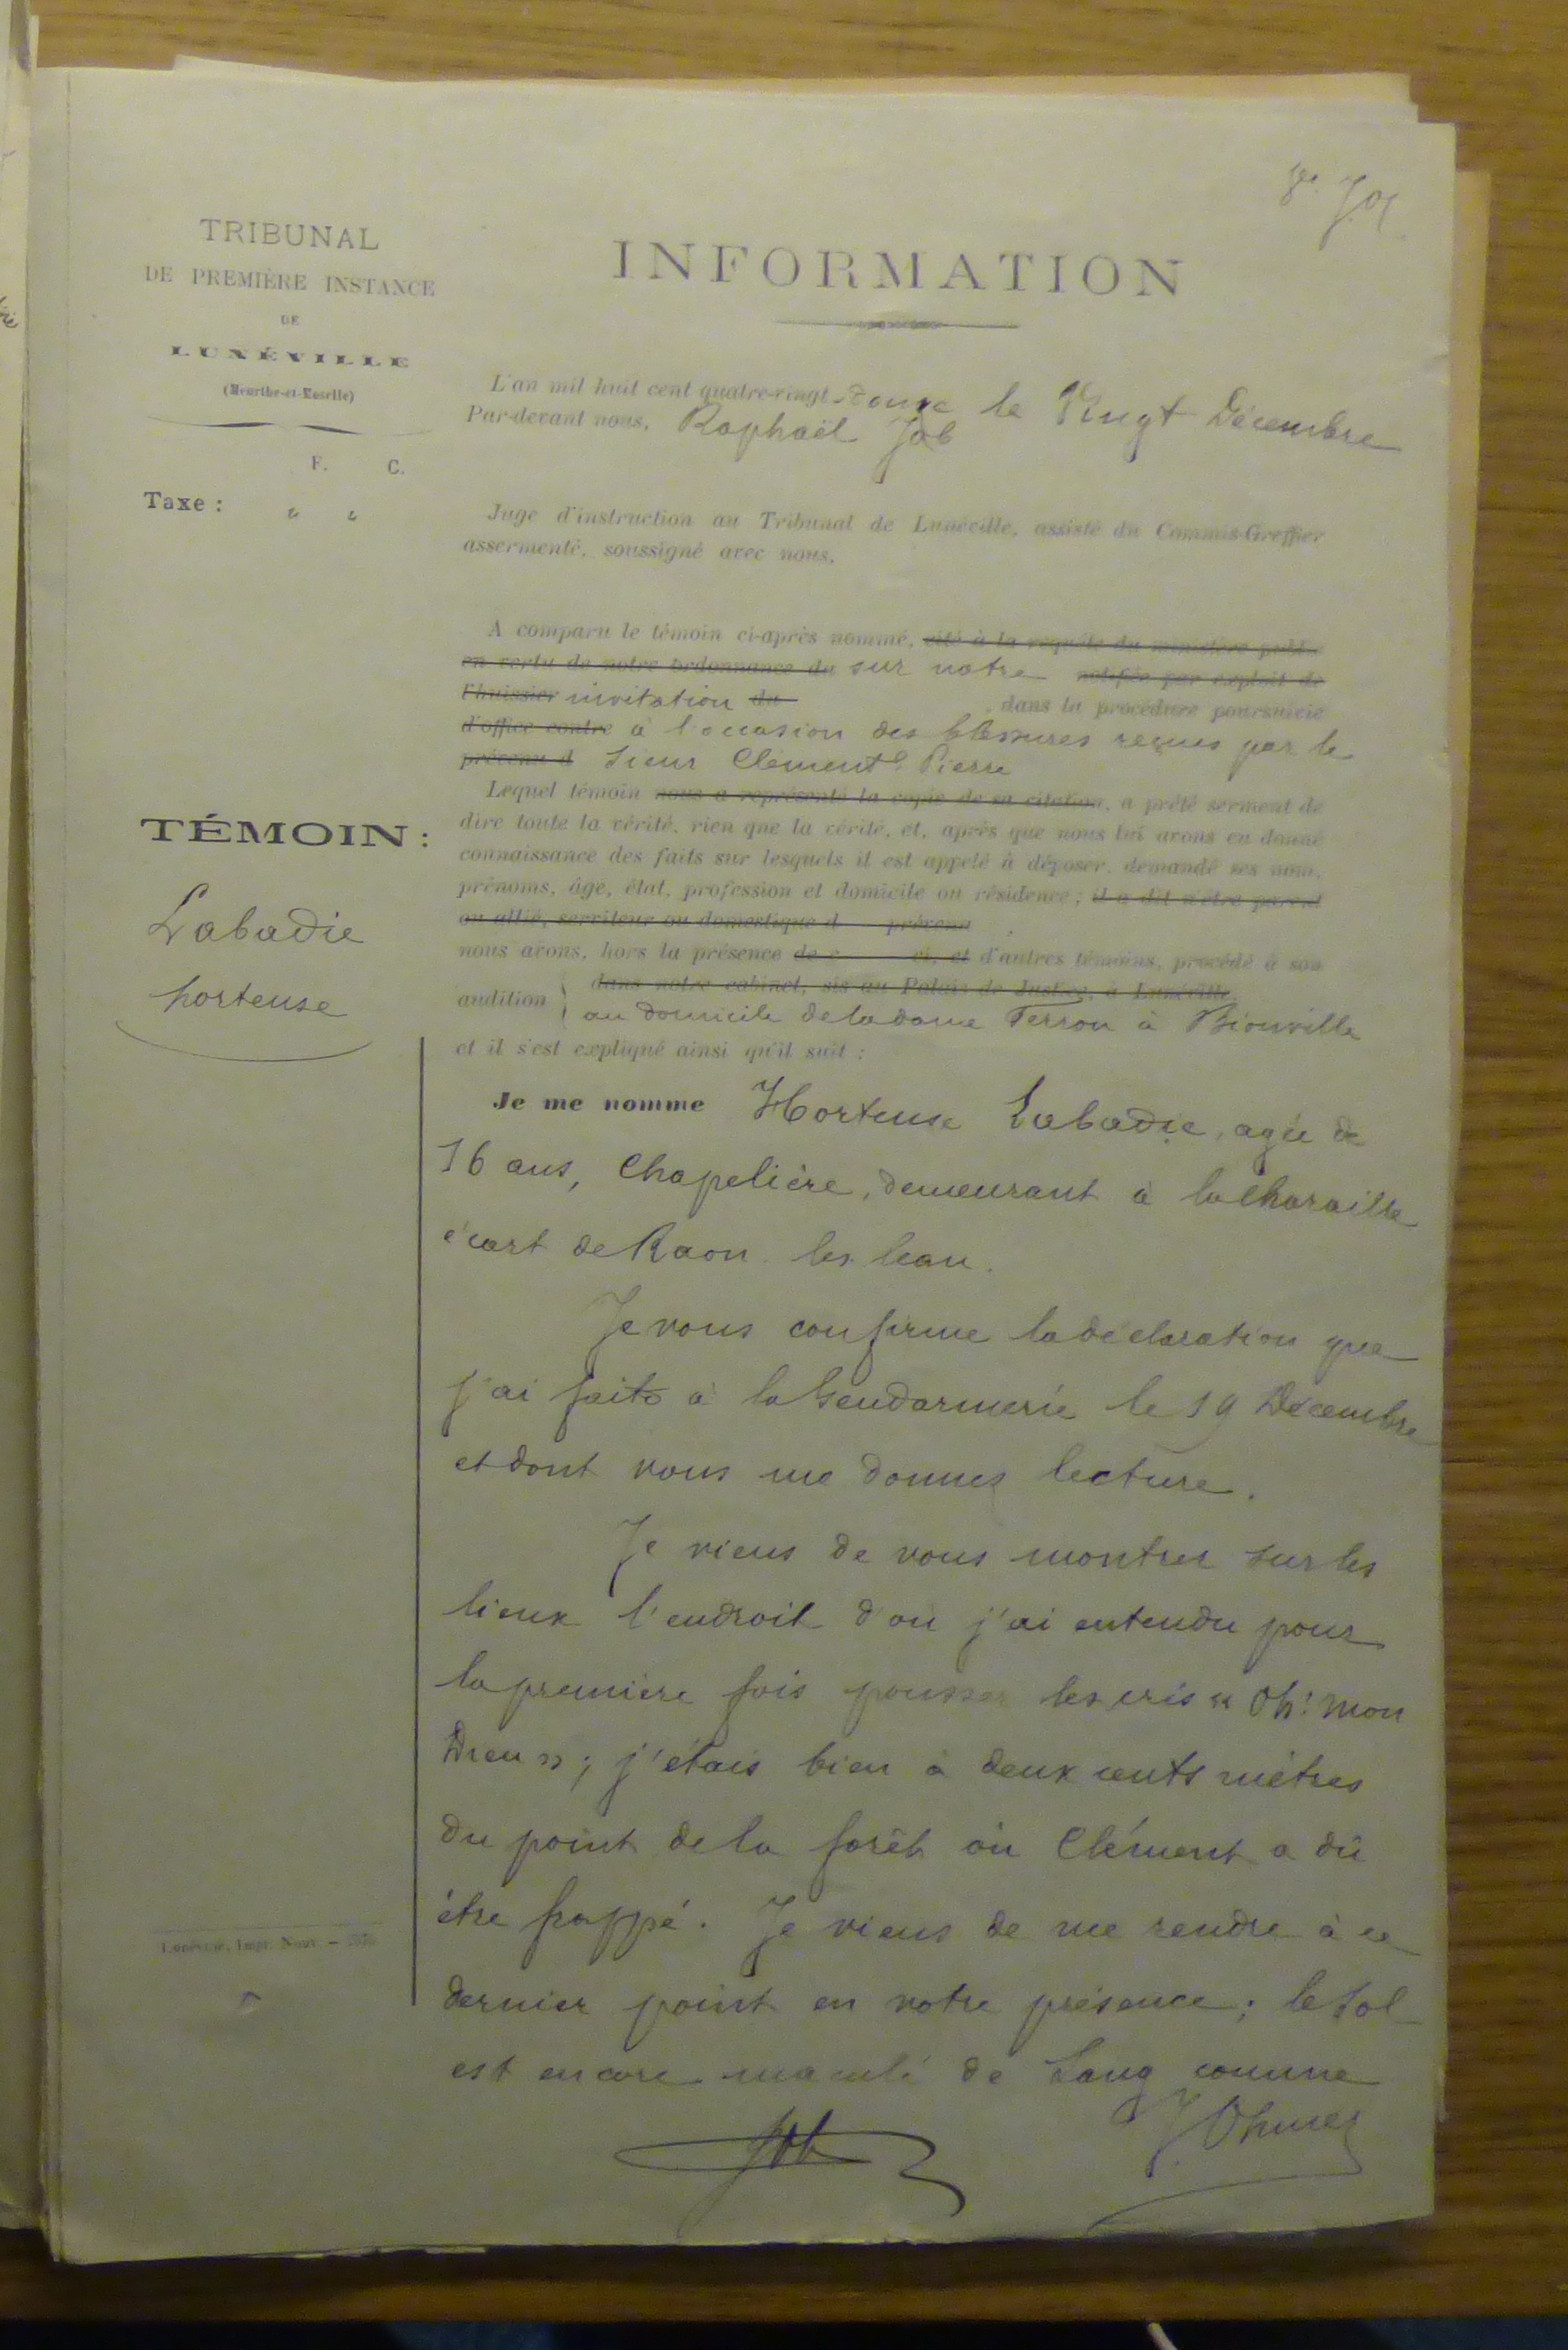 TRIBUNAL
DE PREMIÈRE INSTANCE
DE
LUNÉVILLE
(Meurthe-et-Moselle)
F. C.
Taxe : " "
INFORMATION
L'an mil huit cent quatre-vingt-douze le Vingt Décembre
Par-devant nous, Raphaël Job
Juge d'instruction au Tribunal de Lunéville, assisté du Commis-Greffier
assermenté, soussigné avec nous,
A comparu le témoin ci-après nommé, cité à la requête du ministère public
en vertu de notre ordonnance du sur notre notifiée par exploit de
l'huissier invitation du , dans la procédure poursuivie
d'office contre à l'occasion des blessures reçues par le
prévenu d Sieur Clément Pierre
Lequel témoin nous a représenté la copie de sa citation, a prêté serment de
dire toute la vérité, rien que la vérité, et, après que nous lui avons eu donné
connaissance des faits sur lesquels il est appelé à déposer, demandé ses nom,
prénoms, âge, état, profession et domicile ou résidence ; il a dit n'être parent
ou allié, serviteur ou domestique d prévenu
nous avons, hors la présence de c ci, et d'autres témoins, procédé à son
audition { dans notre cabinet, sis au Palais de Justice, à Lunéville
au domicile de la dame Ferron à Bionville
et il s'est expliqué ainsi qu'il suit :
TÉMOIN :
Labadie
hortense
Je me nomme Hortense Labadie, agée de
16 ans, Chapelière, demeurant à la Charaille
écart de Raon les leau.
Je vous confirme la déclaration que
j'ai faite à la Gendarmerie le 19 Décembre
et dont vous me donnez lecture.
Je viens de vous montrer sur les
lieux l'endroit d'où j'ai entendu pour
la première fois pousser les cris « Oh! mon
Dieu » ; j'étais bien à deux cents mètres
du point de la forêt où Clément a dû
être frappé. Je viens de me rendre à ce
dernier point en votre présence ; le sol
est encore maculé de Sang comme
Job
Lunéville, Impr. Nouv. —